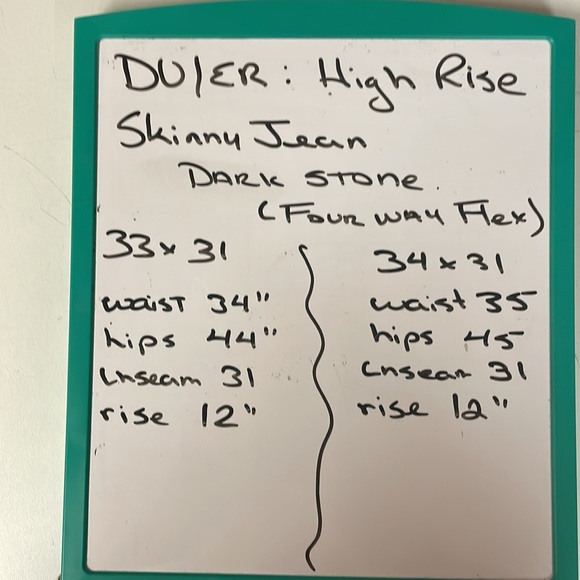 DU/ER: High Rise
Skinny Jean
DARK STONE.
(FOUR WAY Flex)
33 x 31
waist 34"
hips 44"
Inseam 31
rise 12"
34 x 31
waist 35
hips 45
Inseam 31
rise 12"